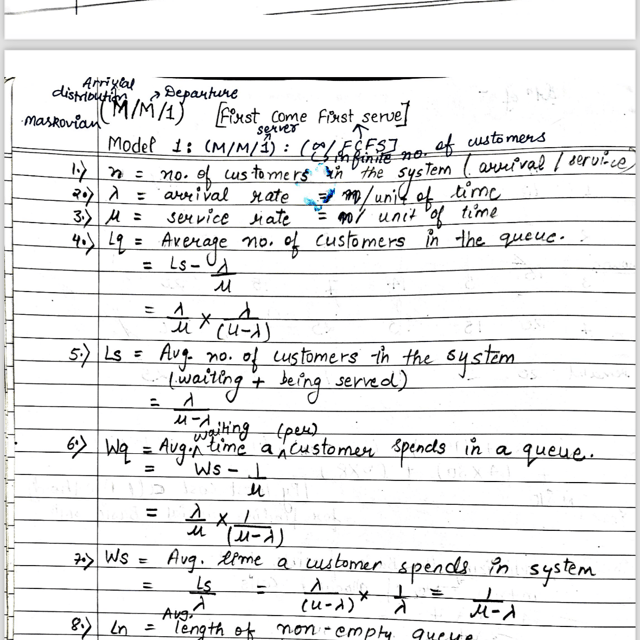 Arrivial
distribution → Departure
maskovian (M/M/1) [First come First serve]
server
Model 1: (M/M/1) : (∞/FCFS]
Infinite no. of customers
1.) n = no. of customers in the system (arrival/service)
2.) λ = arrival rate = n/unit of time
3.) μ = service rate = n/ unit of time
4.) Lq = Average no. of customers in the queue.
= Ls - λ/μ
= λ/μ × λ/(μ-λ)
5.) Ls = Avg. no. of customers in the system
(waiting + being served)
= λ/μ-λ
waiting (per)
6.) Wq = Avg. time a customer spends in a queue.
= Ws - 1/μ
= λ/μ × 1/(μ-λ)
7.) Ws = Avg. time a customer spends in system
= Ls/λ = λ/(μ-λ) × 1/λ = 1/μ-λ
Avg.
8.) Ln = length of non-empty queue